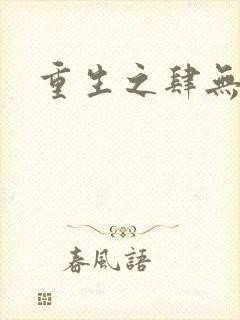 重生之肆無
春風語